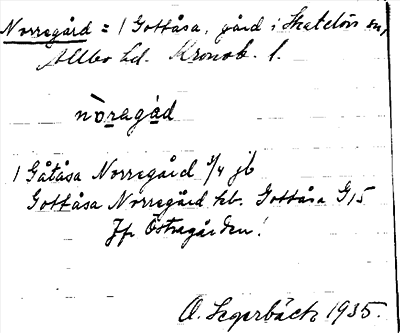 Norregård = 1 Gottåsa, gård i Skatelövs sn,
Allbo hd. Kronob. l.
nò̱ragá̱d
1 Gåtåsa Norregård 3/4 jb
Gottåsa Norregård kb. Gottåsa G15
Jfr Östragården!
O. Segerbäck 1935.